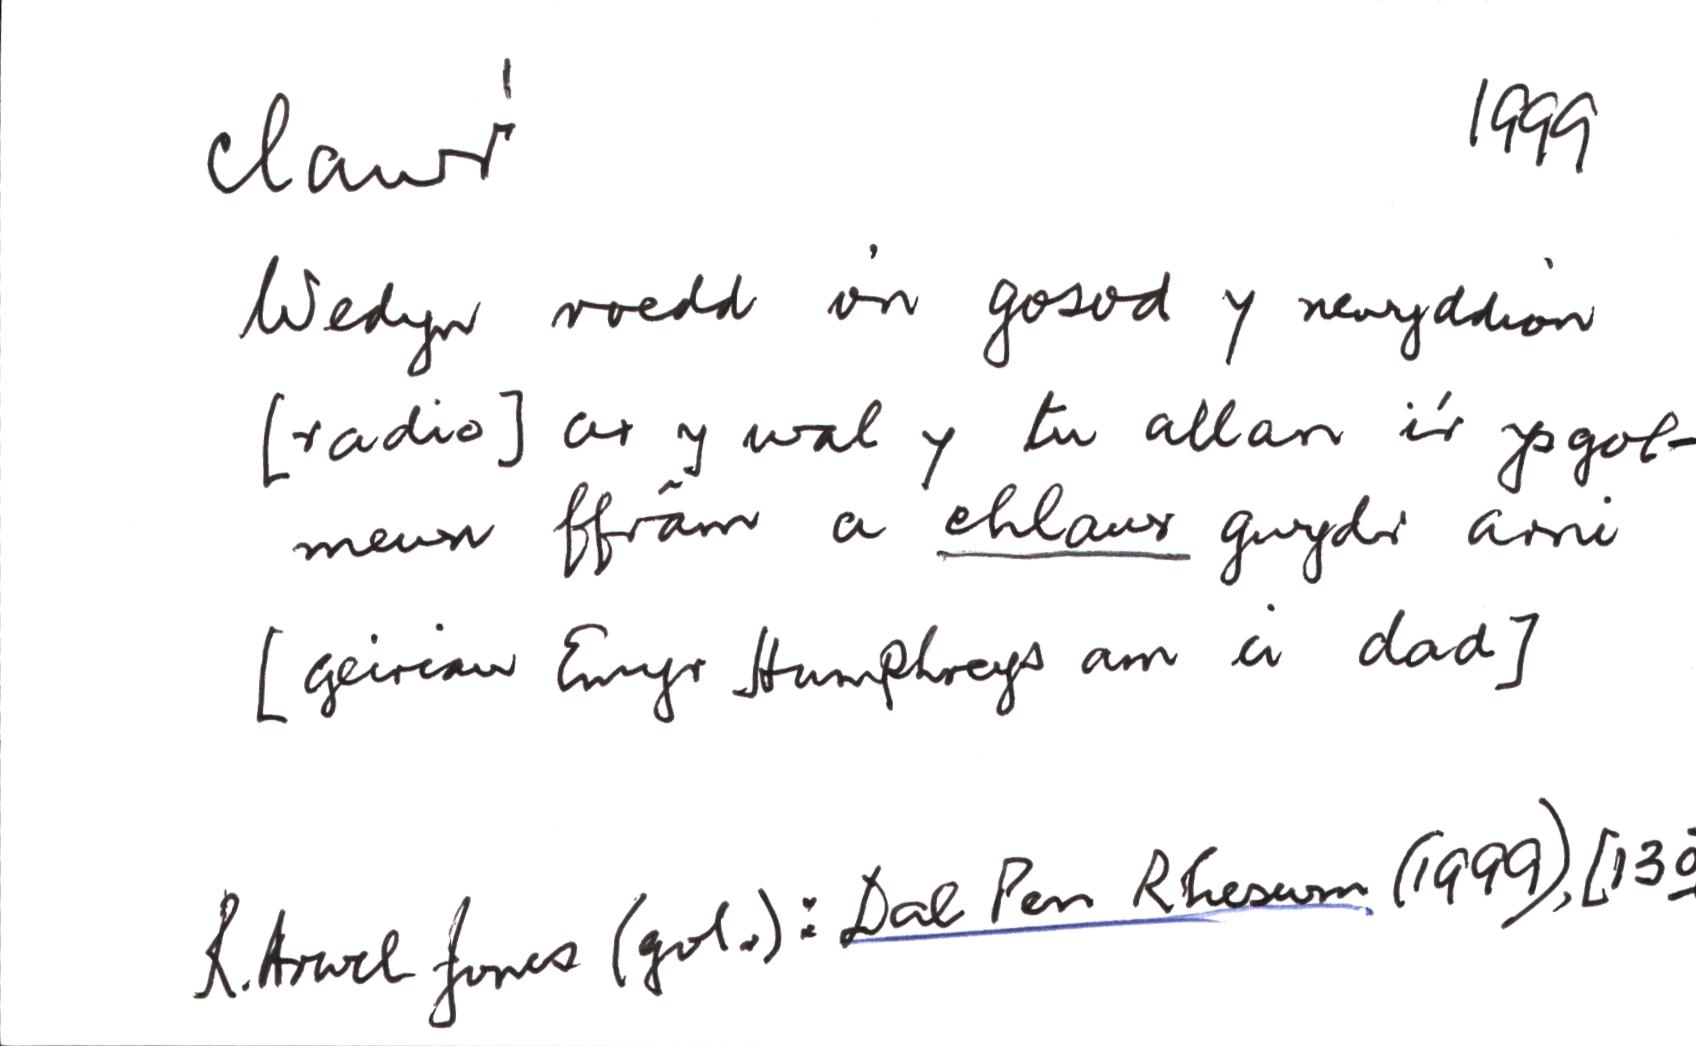 clawr¹ 1999
Wedyn roedd o'n gosod y newyddion
[radio] ar y wal y tu allan i'r ysgol-
mewn ffrâm a chlawr gwydr arni
[geiriau Emyr Humphreys am ei dad]
R. Arwel Jones (gol.): Dal Pen Rheswm (1999), [130